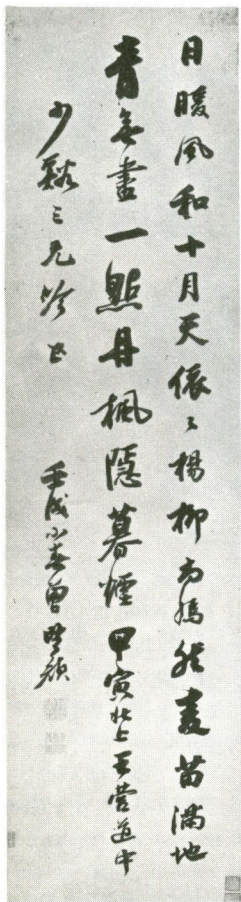 日暖風和十月天依〻楊柳尚嫣然麥苗滿地
青無盡一點丹楓隱暮煙 甲寅北上王營道中
少谿三兄吟正
壬戌小春曾望顏